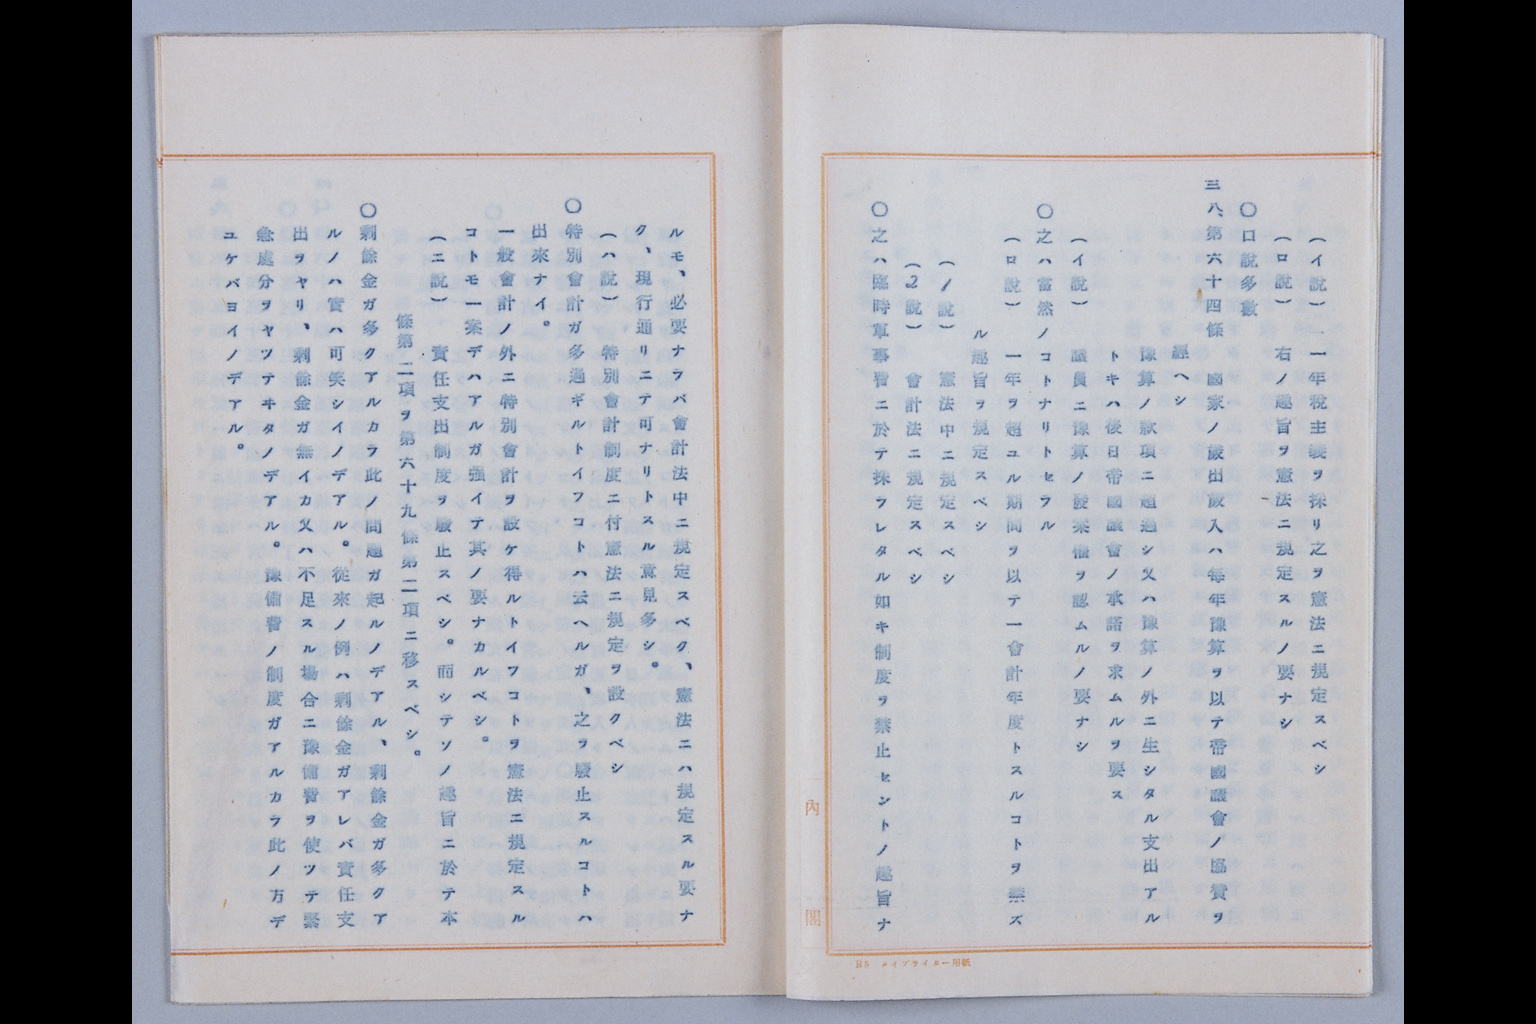 (イ說) 一年稅主義ヲ採リ之ヲ憲法ニ規定スベシ
(ロ說) 右ノ趣旨ヲ憲法ニ規定スルノ要ナシ
○ロ說多數
三八、第六十四條 國家ノ歲出歲入ハ每年豫算ヲ以テ帝國議會ノ協贊ヲ
經ヘシ
豫算ノ款項ニ超過シ又ハ豫算ノ外ニ生シタル支出アル
トキハ後日帝國議會ノ承諾ヲ求ムルヲ要ス
(イ說) 議員ニ豫算ノ發案權ヲ認ムルノ要ナシ
○之ハ當然ノコトナリトセラル
(ロ說) 一年ヲ超ユル期間ヲ以テ一會計年度トスルコトヲ禁ズ
ル趣旨ヲ規定スベシ
(1說) 憲法中ニ規定スベシ
(2說) 會計法ニ規定スベシ
○之ハ臨時軍事費ニ於テ採ラレタル如キ制度ヲ禁止セントノ趣旨ナ
內閣
B5 タイプライター用紙
ルモ、必要ナラバ會計法中ニ規定スベク、憲法ニハ規定スル要ナ
ク、現行通リニテ可ナリトスル意見多シ。
(ハ說) 特別會計制度ニ付憲法ニ規定ヲ設クベシ
○特別會計ガ多過ギルトイフコトハ云ヘルガ、之ヲ廢止スルコトハ
出來ナイ。
一般會計ノ外ニ特別會計ヲ設ケ得ルトイフコトヲ憲法ニ規定スル
コトモ一案デハアルガ强イテ其ノ要ナカルベシ。
(ニ說) 責任支出制度ヲ廢止スベシ。而シテソノ趣旨ニ於テ本
條第二項ヲ第六十九條第二項ニ移スベシ。
○剩餘金ガ多クアルカラ此ノ問題ガ起ルノデアル、剩餘金ガ多クア
ルノハ實ハ可笑シイノデアル。從來ノ例ハ剩餘金ガアレバ責任支
出ヲヤリ、剩餘金ガ無イカ又ハ不足スル場合ニ豫備費ヲ使ツテ緊
急處分ヲヤツテキタノデアル。豫備費ノ制度ガアルカラ此ノ方デ
ユケバヨイノデアル。